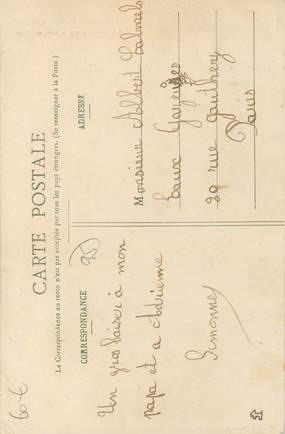 CARTE POSTALE
La Correspondance au recto n'est pas acceptée par tous les pays étrangers. (Se renseigner à la Poste.)
CORRESPONDANCE
Un gros baiser à mon
papa et a Adrienne
Simonne
ADRESSE
Monsieur Albert Calmels
Eaux Gazeuses
20 rue Gauthey
Paris
60-6